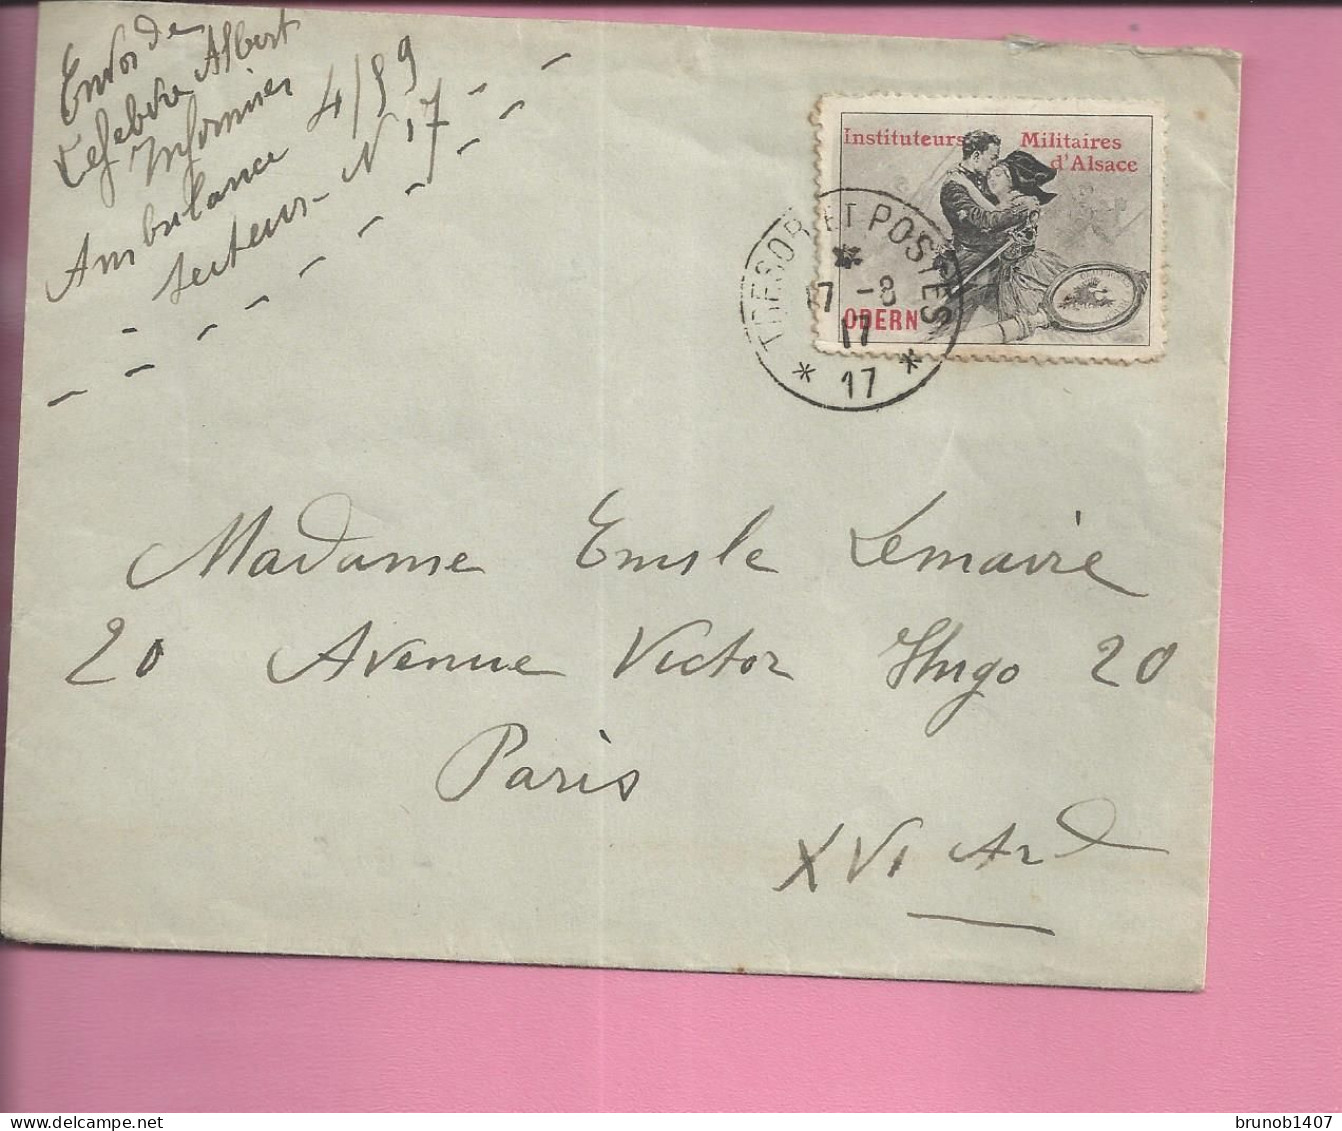 Envoi de
Lefebvre Albert
Infirmier
Ambulance 4/59
secteur - N 17
Instituteurs Militaires
d'Alsace
ODERN
TRESOR ET POSTES
17 -8
17
* 17 *
Madame Emile Lemaire
20 Avenue Victor Hugo 20
Paris
XVI Ard
brunob1407